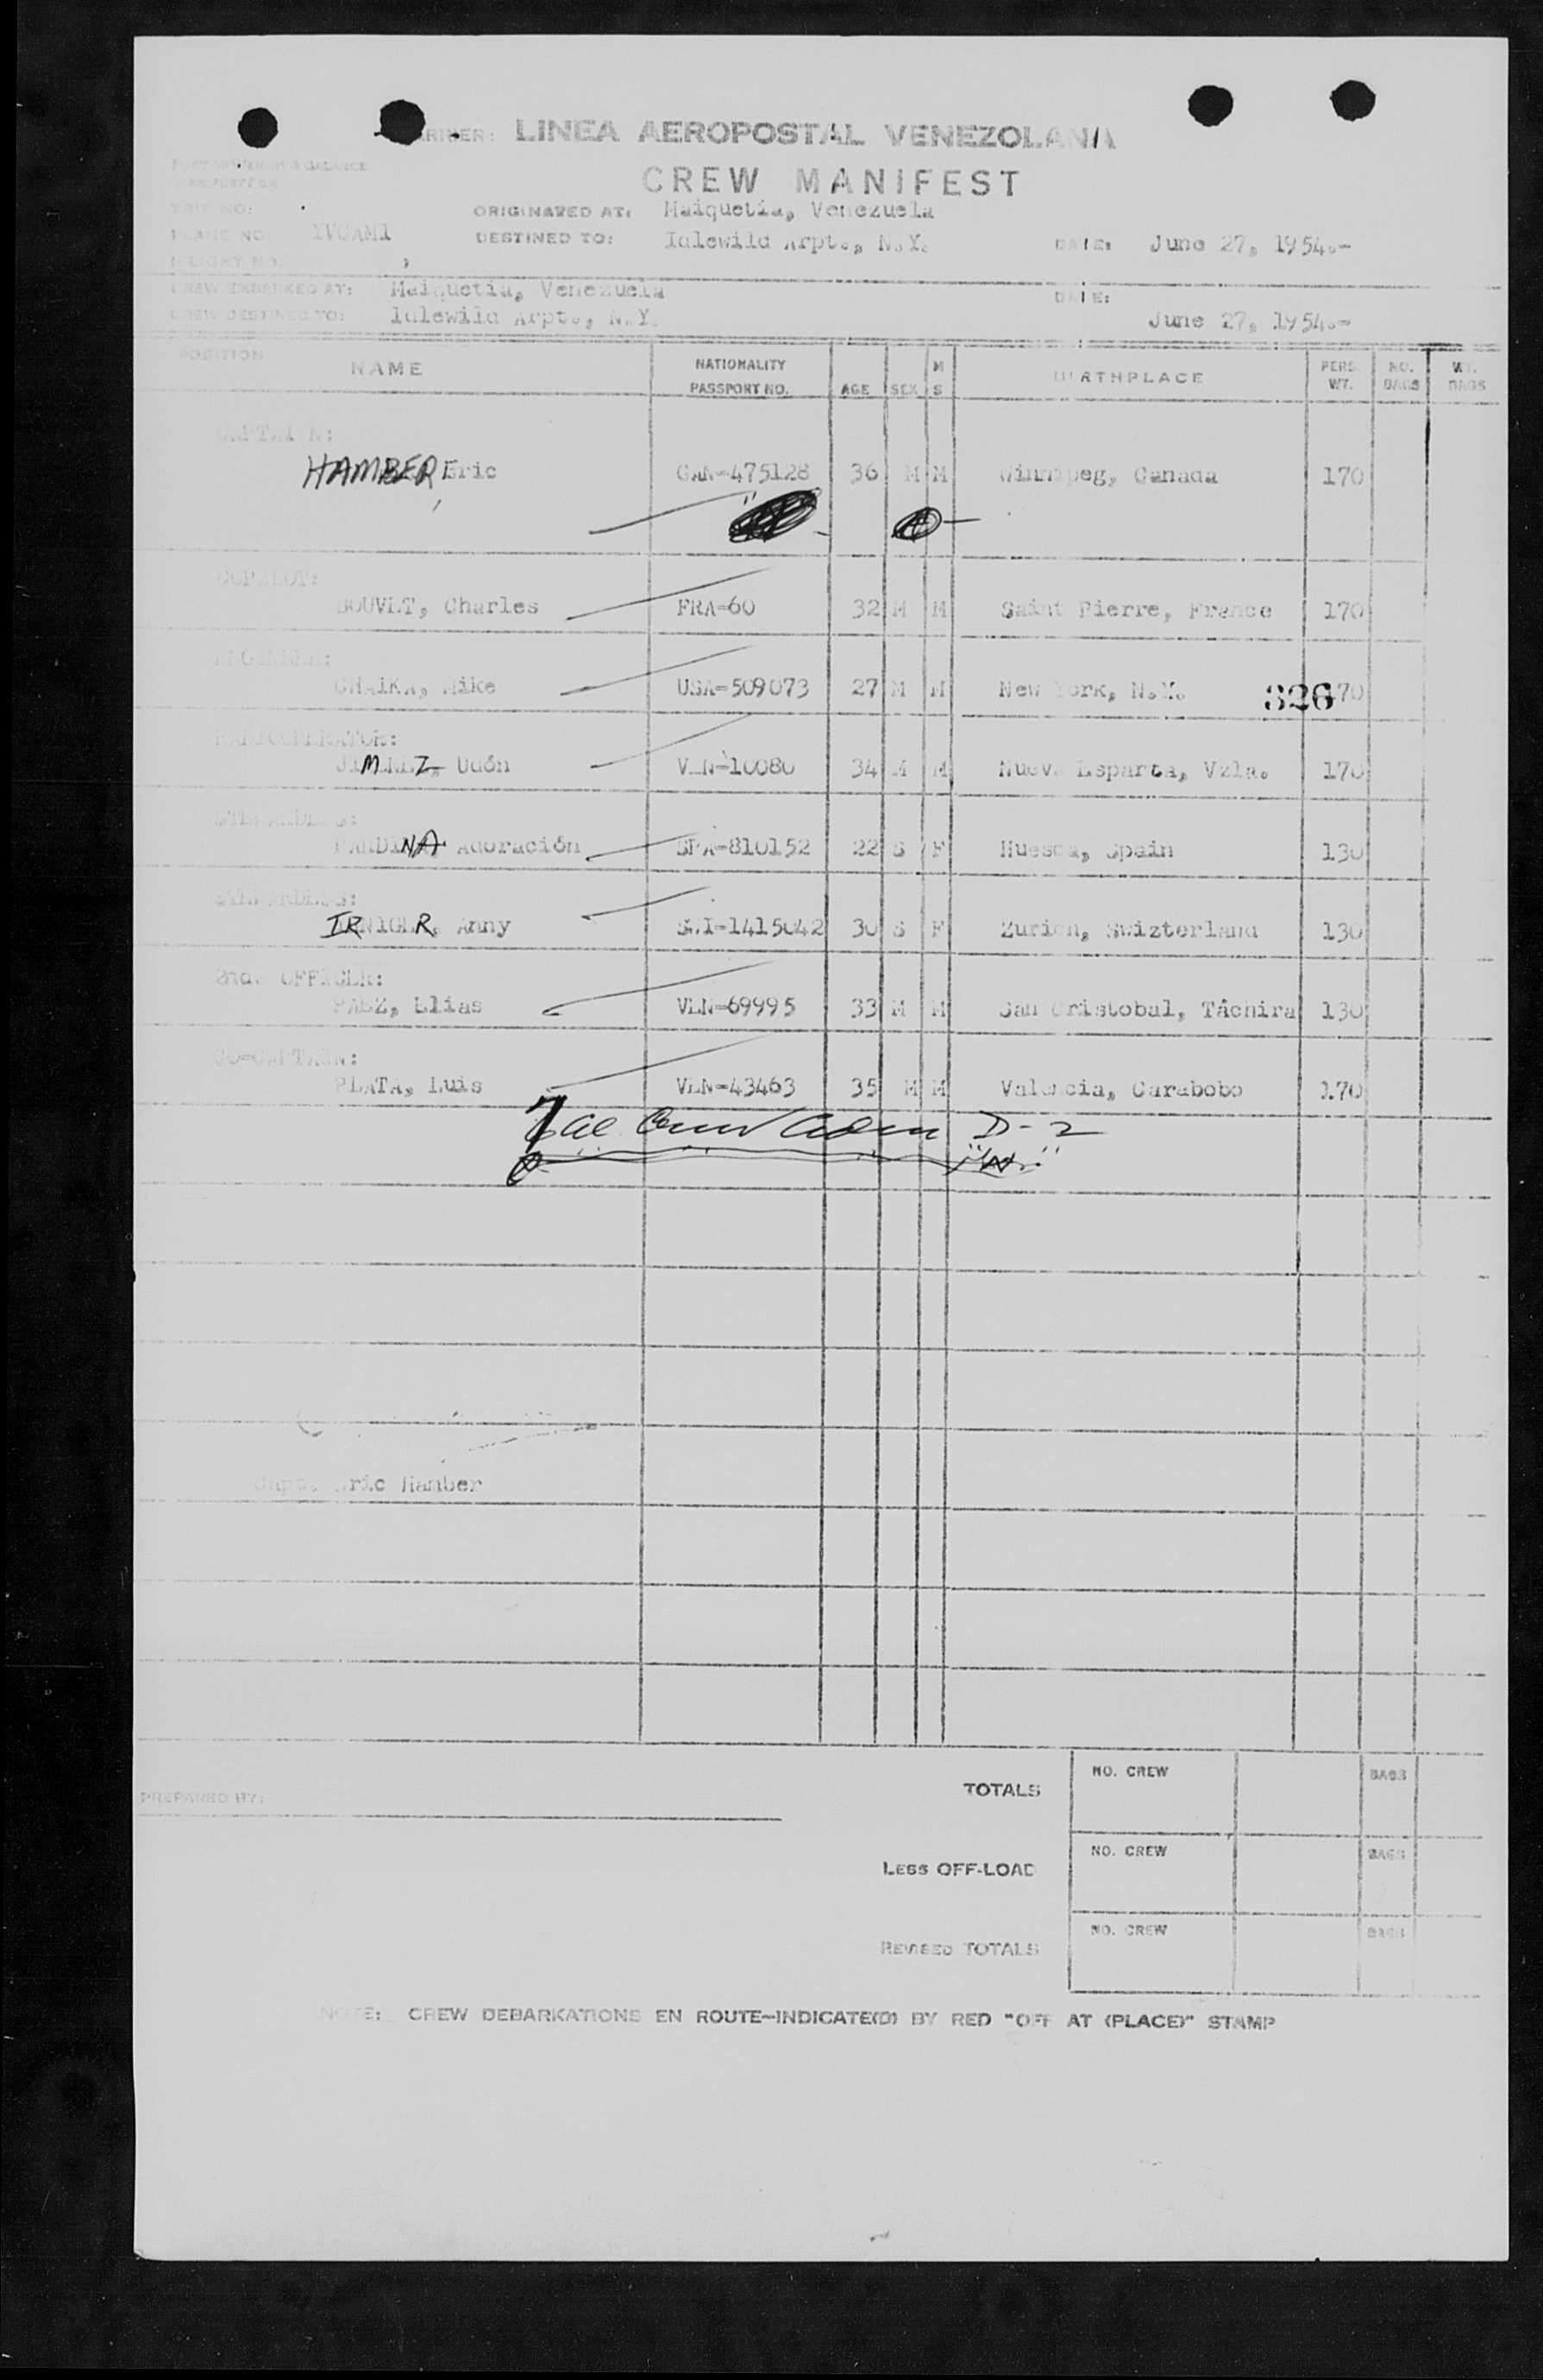 CARRIER: LINEA AEROPOSTAL VENEZOLANA
CREW MANIFEST
TRIP NO: ORIGINATED AT: Maiquetia, Venezuela
PLANE NO: YVCAM1 DESTINED TO: Idlewild Arpt., N.Y. DATE: June 27, 1954.-
FLIGHT NO:
CREW EMBARKED AT: Maiquetia, Venezuela DATE:
CREW DESTINED TO: Idlewild Arpt., N.Y. June 27, 1954.-
POSITION NAME NATIONALITY PASSPORT NO. AGE SEX M S BIRTHPLACE PERS. WT. NO. BAGS WT. BAGS
CAPTAIN:
HAMBER, Eric CAN-475128 36 M M Winnipeg, Canada 170
COPILOT:
BOUVET, Charles FRA-60 32 M M Saint Pierre, France 170
ENGINEER:
CHAIKA, Mike USA-509073 27 M M New York, N.Y. 170
326
RADIOOPERATOR:
JIMENEZ, Udón VEN-10080 34 M M Nueva Esparta, Vzla. 170
STEWARDESS:
PARDINA, Adoración SPA-810152 22 S F Huesca, Spain 130
STEWARDESS:
IRNIGER, Anny SWI-1415042 30 S F Zurich, Swizterland 130
2nd. OFFICER:
PAEZ, Elias VEN-69995 33 M M San Cristobal, Táchira 130
CO-CAPTAIN:
PLATA, Luis VEN-43463 35 M M Valencia, Carabobo 170
7 al Crew Adm D-2
Capt. Eric Hamber
PREPARED BY:
TOTALS NO. CREW BAGS
LESS OFF-LOAD NO. CREW BAGS
REVISED TOTALS NO. CREW BAGS
NOTE: CREW DEBARKATIONS EN ROUTE-INDICATE(D) BY RED "OFF AT (PLACE)" STAMP